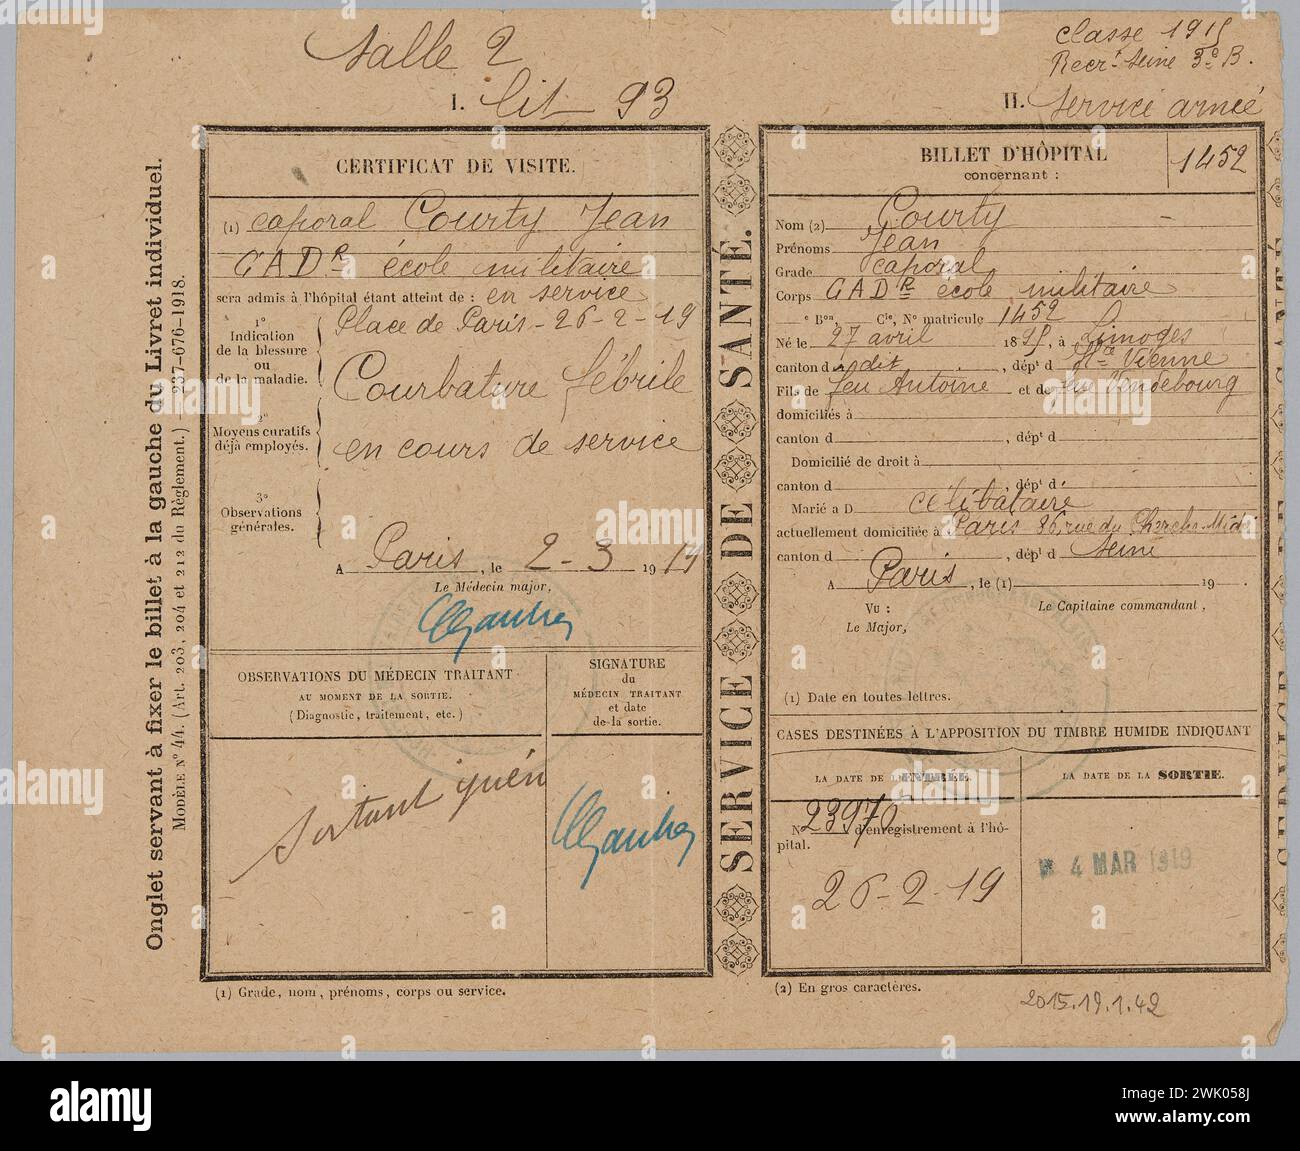 Salle 2
I. lit 93
Onglet servant à fixer le billet à la gauche du Livret individuel.
MODÈLE Nº 44. (Art. 203, 204 et 212 du Règlement.) — 237-676-1918.
CERTIFICAT DE VISITE.
(1) caporal Courty Jean
GADR école militaire
sera admis à l'hôpital étant atteint de : en service
Place de Paris - 26-2-19
1º
Indication
de la blessure
ou
de la maladie.
Courbature fébrile
2º
Moyens curatifs
déjà employés.
en cours de service
3º
Observations
générales.
A Paris, le 2-3 1919
Le Médecin major,
OBSERVATIONS DU MÉDECIN TRAITANT
AU MOMENT DE LA SORTIE.
(Diagnostic, traitement, etc.)
SIGNATURE
du
MÉDECIN TRAITANT
et date
de la sortie.
Sortant guéri
(1) Grade, nom, prénoms, corps ou service.
SERVICE DE SANTÉ.
classe 1915
Recrt Seine 3e B.
II. Service armé
BILLET D'HÔPITAL
concernant :
1452
Nom (2) Courty
Prénoms Jean
Grade caporal
Corps GADR école militaire
e Bon, Cie, Nº matricule 1452
Né le 27 avril 1895, à Limoges
canton d dit, dépt d Hte Vienne
Fils de feu Antoine et de feu Vendebourg
domiciliés à
canton d , dépt d
Domicilié de droit à
canton d , dépt d
Marié a D célibataire
actuellement domiciliée à Paris 86, rue du Cherche-Midi
canton d , dépt d Seine
A Paris, le (1) 19 .
Vu :
Le Major,
Le Capitaine commandant,
(1) Date en toutes lettres.
CASES DESTINÉES À L'APPOSITION DU TIMBRE HUMIDE INDIQUANT
LA DATE DE L'ENTRÉE.
LA DATE DE LA SORTIE.
Nº 23970 d'enregistrement à l'hô-
pital.
26-2-19
4 MAR 1919
(2) En gros caractères.
2015.19.1.42
alamy
Image ID: 2WK058J
www.alamy.com